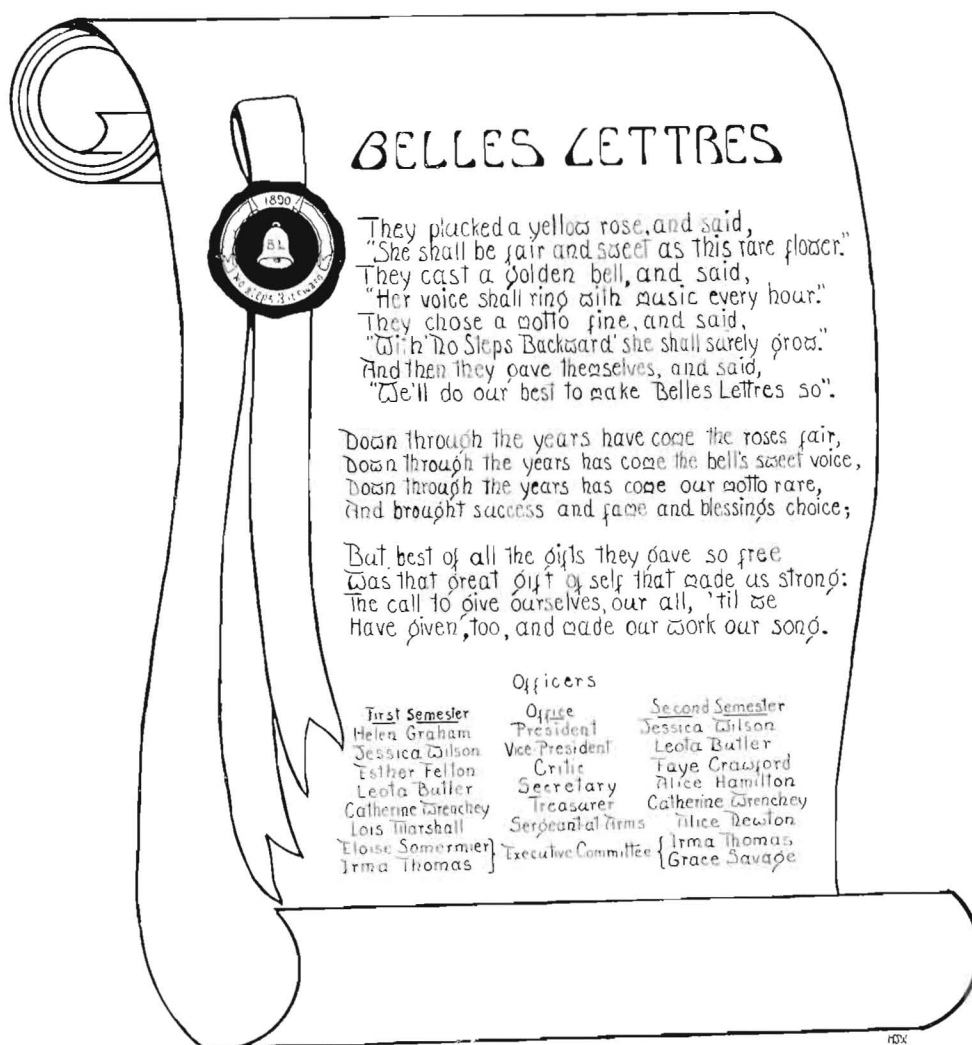 BELLES LETTRES
1890
B L
No Steps Backward
They plucked a yellow rose, and said,
"She shall be fair and sweet as this rare flower."
They cast a golden bell, and said,
"Her voice shall ring with music every hour."
They chose a motto fine, and said,
"With 'No Steps Backward' she shall surely grow."
And then they gave themselves, and said,
"We'll do our best to make Belles Lettres so".
Down through the years have come the roses fair,
Down through the years has come the bell's sweet voice,
Down through the years has come our motto rare,
And brought success and fame and blessings choice;
But best of all the gifts they gave so free
Was that great gift of self that made us strong:
The call to give ourselves, our all, 'til we
Have given, too, and made our work our song.
Officers
First Semester Office Second Semester
Helen Graham President Jessica Wilson
Jessica Wilson Vice-President Leota Butler
Esther Felton Critic Faye Crawford
Leota Butler Secretary Alice Hamilton
Catherine Wrenchey Treasurer Catherine Wrenchey
Lois Marshall Sergeant at Arms Alice Newton
Eloise Somermier } Executive Committee { Irma Thomas
Irma Thomas } { Grace Savage